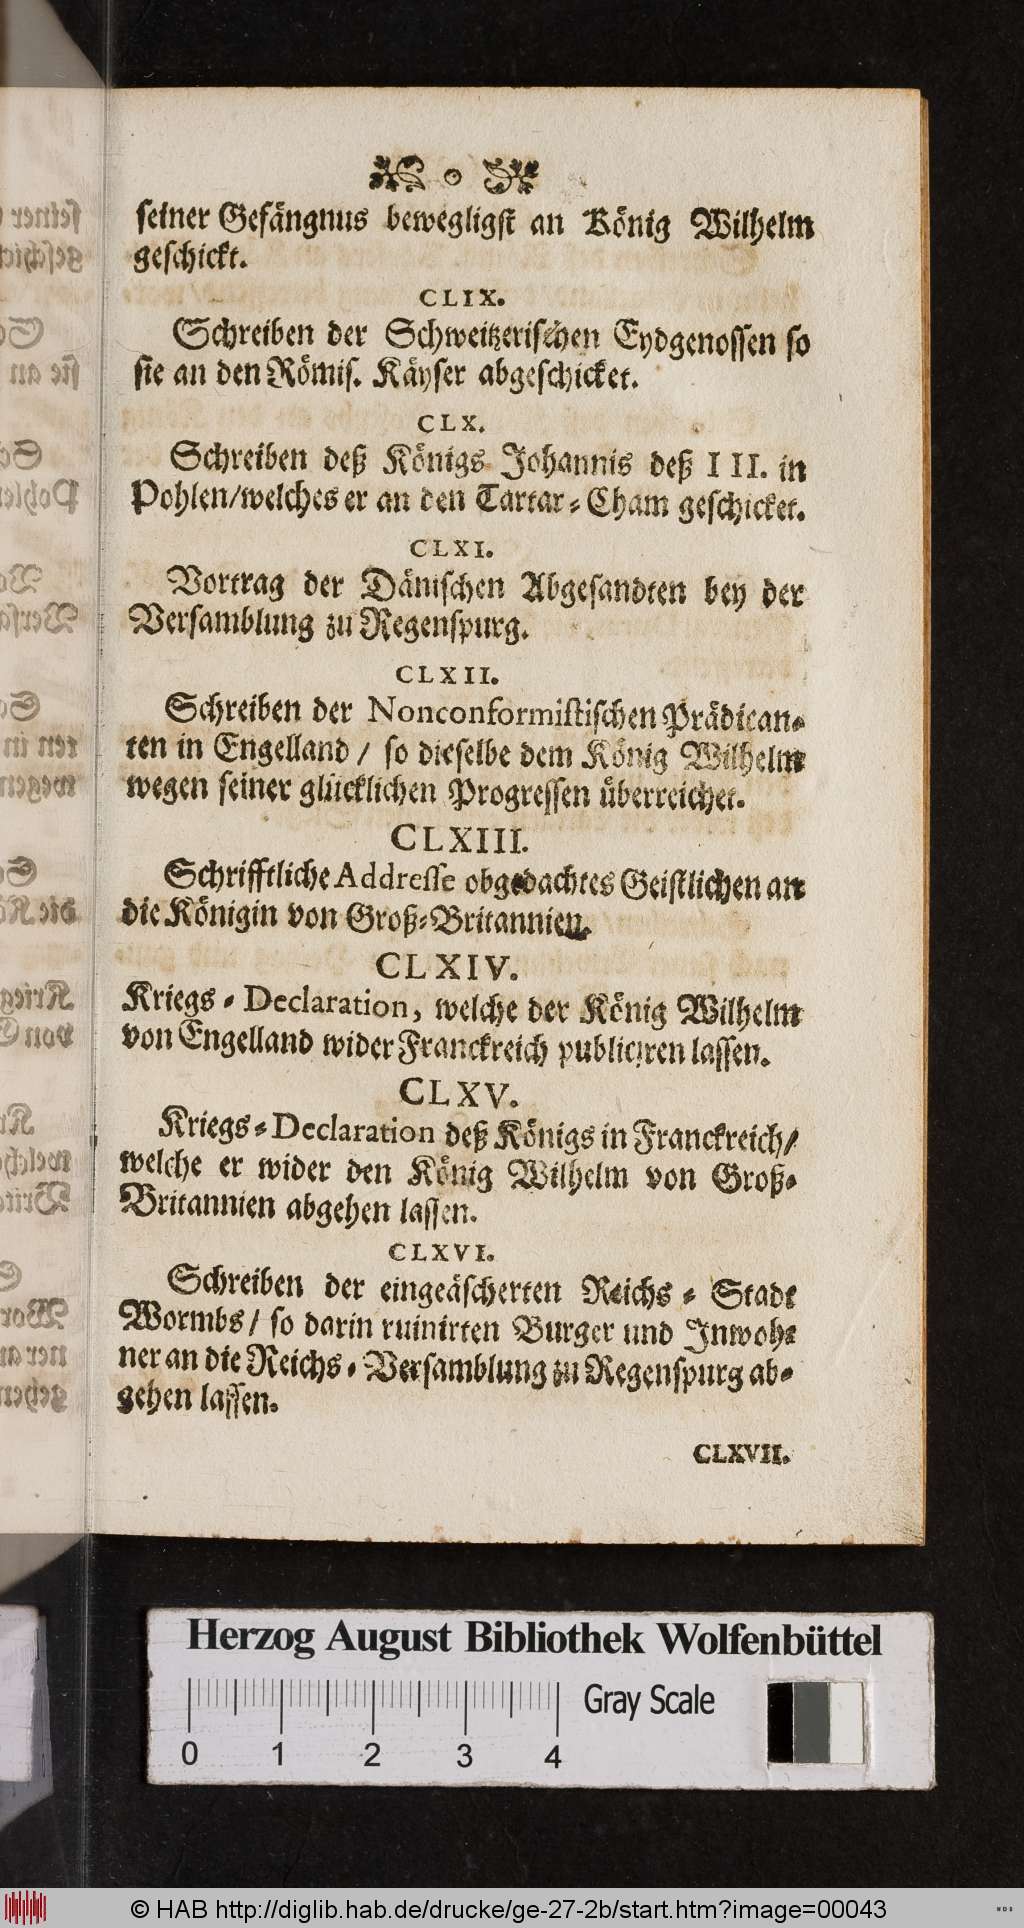 seiner Gefängnus bewegligst an König Wilhelm
geschickt.
CLIX.
Schreiben der Schweitzerischen Eydgenossen so
sie an den Römis. Käyser abgeschicket.
CLX.
Schreiben deß Königs Johannis deß III. in
Pohlen/welches er an den Tartar-Cham geschicket.
CLXI.
Vortrag der Dänischen Abgesandten bey der
Versamblung zu Regenspurg.
CLXII.
Schreiben der Nonconformistischen Prädican-
ten in Engelland / so dieselbe dem König Wilhelm
wegen seiner glücklichen Progressen überreichet.
CLXIII.
Schrifftliche Addresse obgedachtes Geistlichen an
die Königin von Groß-Britannien.
CLXIV.
Kriegs-Declaration, welche der König Wilhelm
von Engelland wider Franckreich publiciren lassen.
CLXV.
Kriegs-Declaration deß Königs in Franckreich/
welche er wider den König Wilhelm von Groß-
Britannien abgehen lassen.
CLXVI.
Schreiben der eingeäscherten Reichs-Stadt
Wormbs / so darin ruinirten Burger und Inwoh-
ner an die Reichs-Versamblung zu Regenspurg ab-
gehen lassen.
CLXVII.
Herzog August Bibliothek Wolfenbüttel
Gray Scale
0 1 2 3 4
© HAB http://diglib.hab.de/drucke/ge-27-2b/start.htm?image=00043